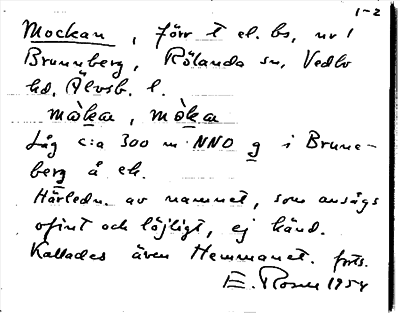 1-2
Mockan, förr t el. bs, nr 1
Brunnberg, Rölanda sn, Vedbo
hd, Älvsb. l.
mòkan, mòkan
Låg c:a 300 m NNO g i Brunn-
berg å ek.
Härledn. av namnet, som ansågs
ofint och löjligt, ej känd.
Kallades även Hemmanet. forts.
E. Rosm 1954